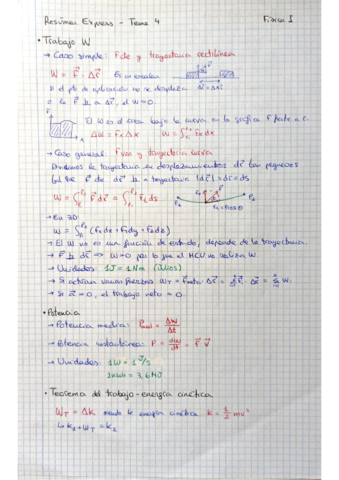 Resúmen Express - Tema 4 Física I
• Trabajo W
→ Caso simple: F cte y trayectoria rectilínea
W = F⃗ · Δr⃗ Es un escalar
Si el pto de aplicación no se desplaza Δr⃗ = Δx⃗
o la F⃗ ⊥ a Δr⃗, el W=0
El W es el área bajo la curva en la gráfica F frente a r.
ΔW = Fx Δx W = ∫ Fx dx
→ Caso general: F var y trayectoria curva
Dividimos la trayectoria en desplazamientos dr⃗ tan pequeños
a trayectoria |dr⃗| = dr = ds
W = ∫ F⃗ dr⃗ = ∫ Ft ds
→ En 3D
W = ∫ (Fx dx + Fy dy + Fz dz)
→ El W no es una función de estado, depende de la trayectoria.
→ F⃗ ⊥ dr⃗ => W=0 por lo que el MCU no realiza W
→ Unidades: 1J = 1Nm (Julios)
→ Si actúan varias fuerzas
→ Si = 0, el trabajo neto = 0
• Potencia
→ Potencia media: Pmed = ΔW/Δt
→ Potencia instantánea: P = dW/dt = F⃗ v⃗
→ Unidades: 1W = 1 J/s
1kWh = 3,6MJ
• Teorema del trabajo-energía cinética
WT = ΔK siendo la energía cinética K = 1/2 mv²
↳ K1 + WT = K2